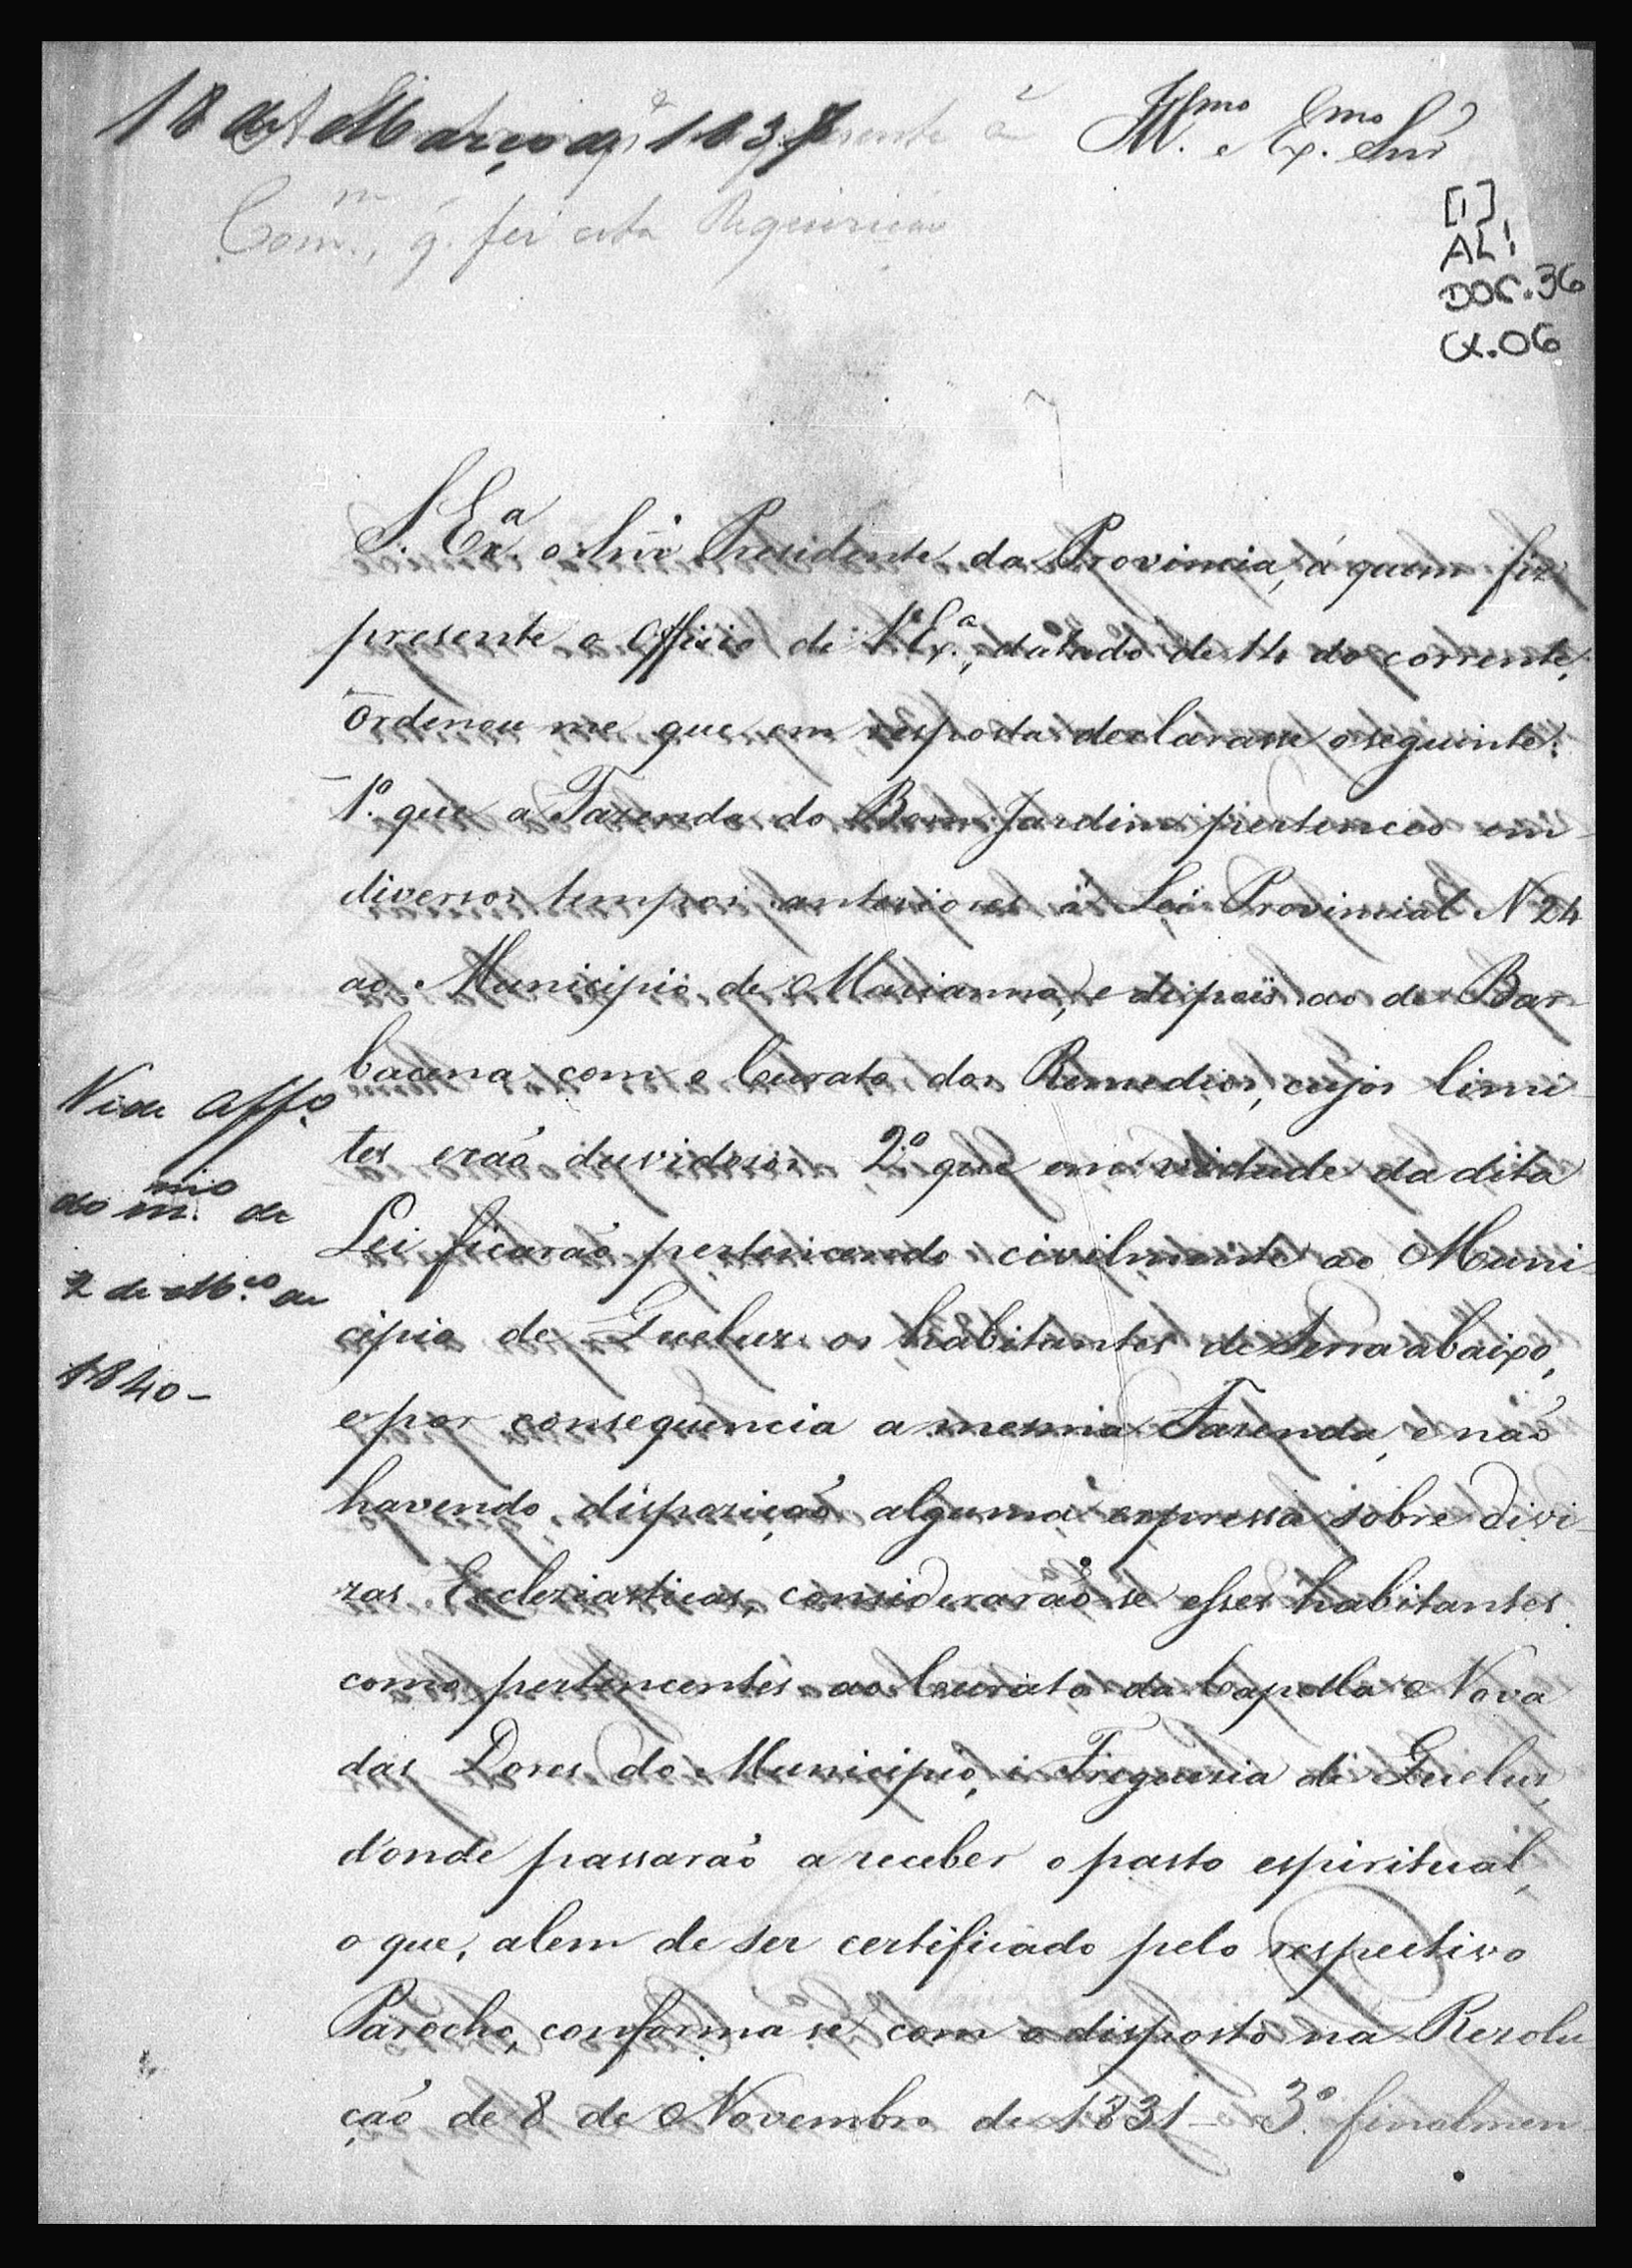 18 de Março de 1837
Illmo e Exmo Snr
Comm., q. fez esta Requisição
[1]
AL1
DOC.36
CX.06
S. Exa. o Snr Presidente da Provincia, á quem fiz
presente o Officio de V. Exa., datado de 14 do corrente,
ordenou me que em resposta declarasse o seguinte:
1º. que a Fazenda do Bom Jardim pertenceo em
diversos tempos anteriores á Lei Provincial N 24
ao Municipio de Marianna, e depois ao de Bar-
bacena com o Curato dos Remedios, cujos limi-
tes erão duvidosos. 2º que em virtude da dita
Lei ficarão pertencendo civilmente ao Muni-
cipio de Queluz os habitantes de Serra abaixo,
e por consequencia a mesma Fazenda, e não
havendo disposição alguma expressa sobre divi-
zas Ecleziasticas, considerarão-se esses habitantes
como pertencentes ao Curato da Capella Nova
das Dores do Municipio, e Freguesia de Queluz,
d'onde passarão a receber o pasto espiritual,
o que, alem de ser certificado pelo respectivo
Parocho, conforma se com o disposto na Rezolu-
ção de 8 de Novembro de 1831 - 3º. finalmen-
Vide Offo.
do mmo de
2 de Mço de
1840-